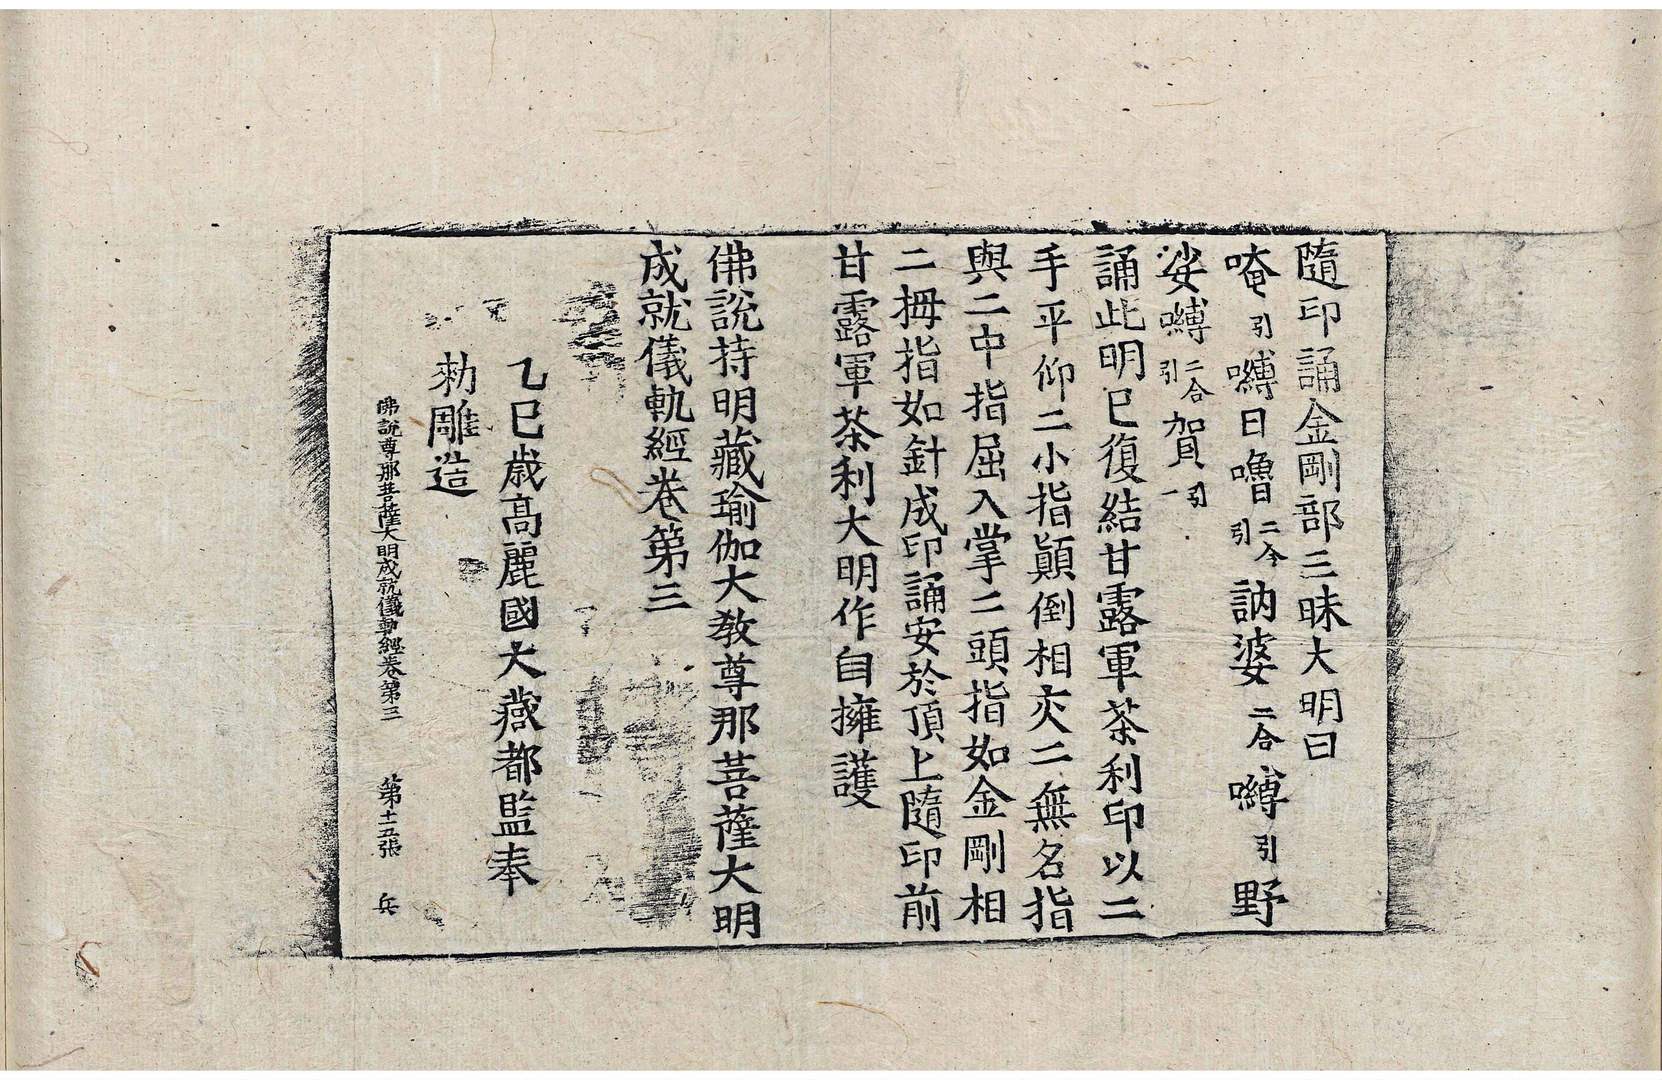 隨印誦金剛部三昧大明曰
唵引嚩日嚕二合引訥婆二合嚩引野
娑嚩二合引賀引一
誦此明已復結甘露軍荼利印以二
手平仰二小指顛倒相交二無名指
與二中指屈入掌二頭指如金剛相
二拇指如針成印誦安於頂上隨印前
甘露軍荼利大明作自擁護
佛說持明藏瑜伽大教尊那菩薩大明
成就儀軌經卷第三
乙巳歲高麗國大藏都監奉
勅雕造
佛說尊那菩薩大明成就儀軌經卷第三 第十五張 兵